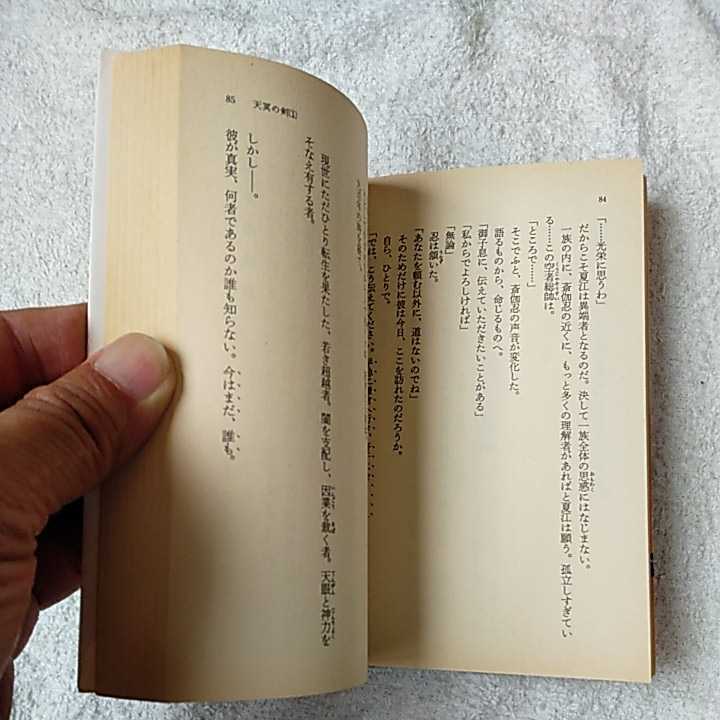 84
「……光栄に思うわ」
だからこそ夏江は異端者となるのだ。決して一族全体の思惑にはなじまない。
一族の内に、斎伽忍の近くに、もっと多くの理解者があればと夏江は願う。孤立しすぎてい
る……この空者総帥は。
「ところで……」
そこでふと、斎伽忍の声音が変化した。
語るものから、命じるものへ。
「御子息に、伝えていただきたいことがある」
「私からでよろしければ」
「無論」
忍は頷いた。
「あなたを頼む以外に、道はないのでね」
そのためだけに彼は今日、ここを訪れたのだろうか。
自ら、ひとりで。
「では、こう伝えてください。
85 天冥の剣(1)
現世にただひとり転生を果たした、若き超越者。闇を支配し、因業を裁く者。天眼と神力を
そなえ有する者。
しかし――。
彼が真実、何者であるのか誰も知らない。今はまだ、誰も。